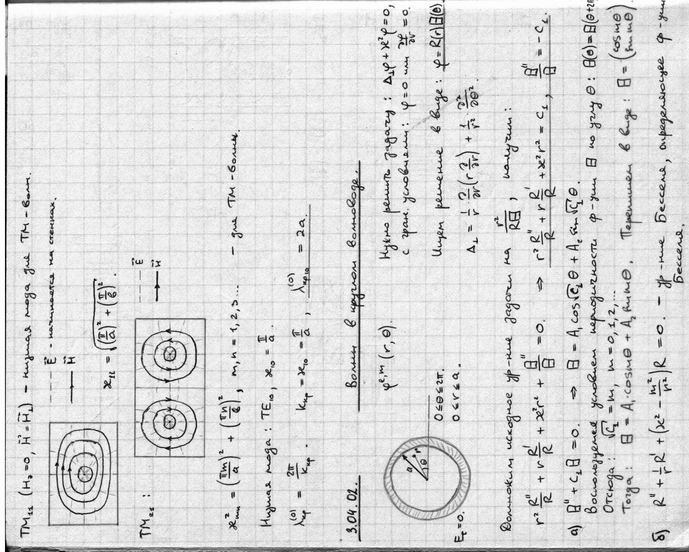 TM₁₁ (H_z=0, H⃗=H⃗_⊥) – низшая мода для TM-волн.
E⃗ - начинается на стенках.
H⃗
ϰ₁₁ = √((π/a)² + (π/b)²).
TM₂₁ :
E⃗
H⃗
ϰ²ₘₙ = (πm/a)² + (πn/b)², m, n = 1, 2, 3... – для TM-волны.
Низшая мода: TE₁₀, ϰ₁₀ = π/a.
λ_кр^(0) = 2π/k_кр. k_кр = ϰ₁₀ = π/a, λ_кр₁₀^(0) = 2a.
3.04.02. Волны в круглом волноводе.
φ^{e,m}(r, θ).
Нужно решить задачу: Δ_⊥φ + ϰ²φ = 0,
с гран. условиями: φ=0 или ∂φ/∂r = 0.
a r θ
0≤θ≤2π.
0≤r≤a.
E_τ=0.
Ищем решение в виде: φ=R(r)Θ(θ)
Δ_⊥ = 1/r ∂/∂r (r ∂/∂r) + 1/r² ∂²/∂θ²
Домножим исходное ур-ние задачи на r²/RΘ, получим:
r² R''/R + r R'/R + ϰ²r² + Θ''/Θ = 0. ⇒ r² R''/R + r R'/R + ϰ²r² = C₁, Θ''/Θ = -C₁.
а) Θ'' + C₁Θ = 0. ⇒ Θ = A₁cos√C₁θ + A₂ sin√C₁θ.
Воспользуемся условием периодичности ф-ции Θ по углу θ: Θ(θ)=Θ(θ+2π
Отсюда: √C₁ = m, m = 0, 1, 2, ...
Тогда: Θ = A₁·cos mθ + A₂ sin mθ. Перепишем в виде: Θ = (cos mθ
sin mθ).
б) R'' + 1/r R' + (ϰ² - m²/r²)R = 0. – ур-ние Бесселя, определяющее ф-ции
Бесселя.